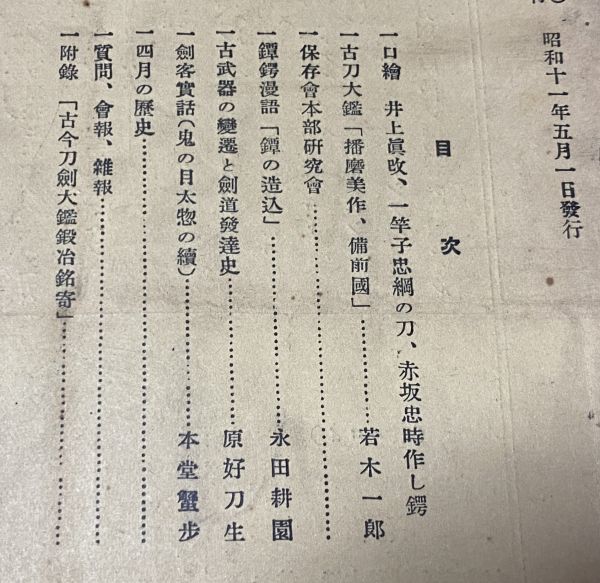 昭和十一年五月一日發行
目次
一口繪　井上眞改、一竿子忠綱の刀、赤坂忠時作し鍔
一古刀大鑑「播磨美作、備前國」……………若木一郎
一保存會本部研究會……………
一鐔鍔漫語「鐔の造込」……………永田耕園
一古武器の變遷と劍道發達史……………原好刀生
一劍客實話（鬼の目太惣の續）……………本堂蟹步
一四月の歷史……………
一質問、會報、雜報……………
一附錄「古今刀劍大鑑鍛冶銘寄」……………